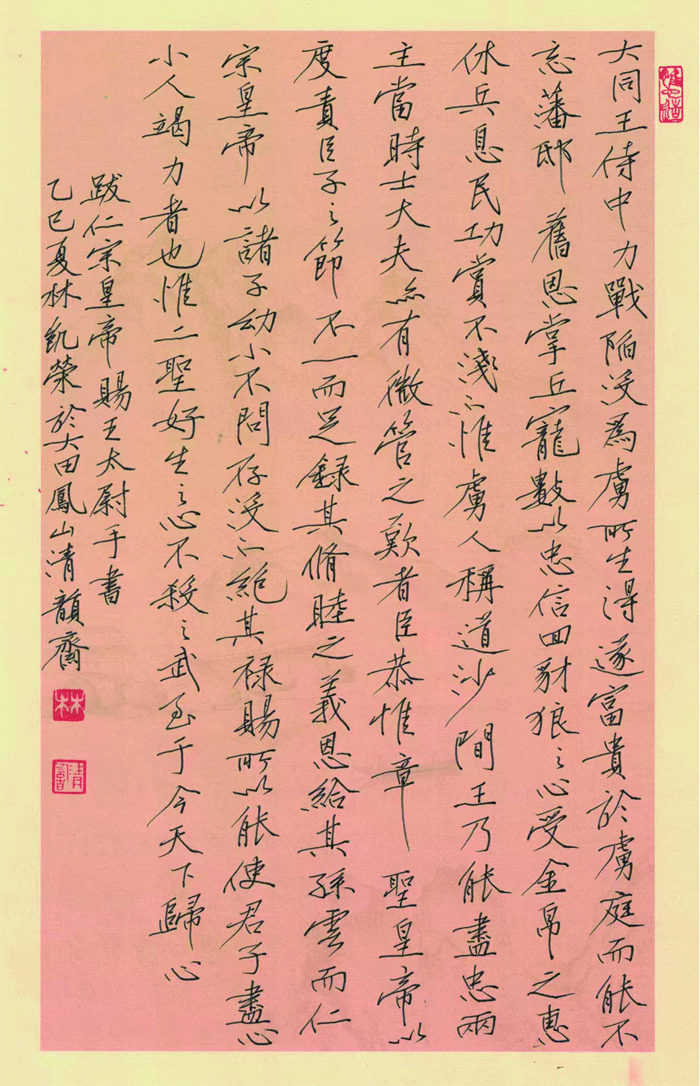 大同王侍中力戰陷沒為虜所生得遂富貴於虜庭而能不
忘藩邸舊恩掌丘寵數以忠信回豺狼之心受金帛之惠
休兵息民功賞不淺不惟虜人稱道沙間王乃能盡忠兩
主當時士大夫亦有微管之歎者臣恭惟章聖皇帝以
度責臣子之節不一而足錄其脩睦之義恩給其孫雲而仁
宗皇帝以諸子幼小不問存沒不絕其祿賜所以能使君子盡心
小人竭力者也惟二聖好生之心不殺之武至于今天下歸心
跋仁宗皇帝賜王太尉手書
乙巳夏林凱榮於大田鳳山清韻齋
林